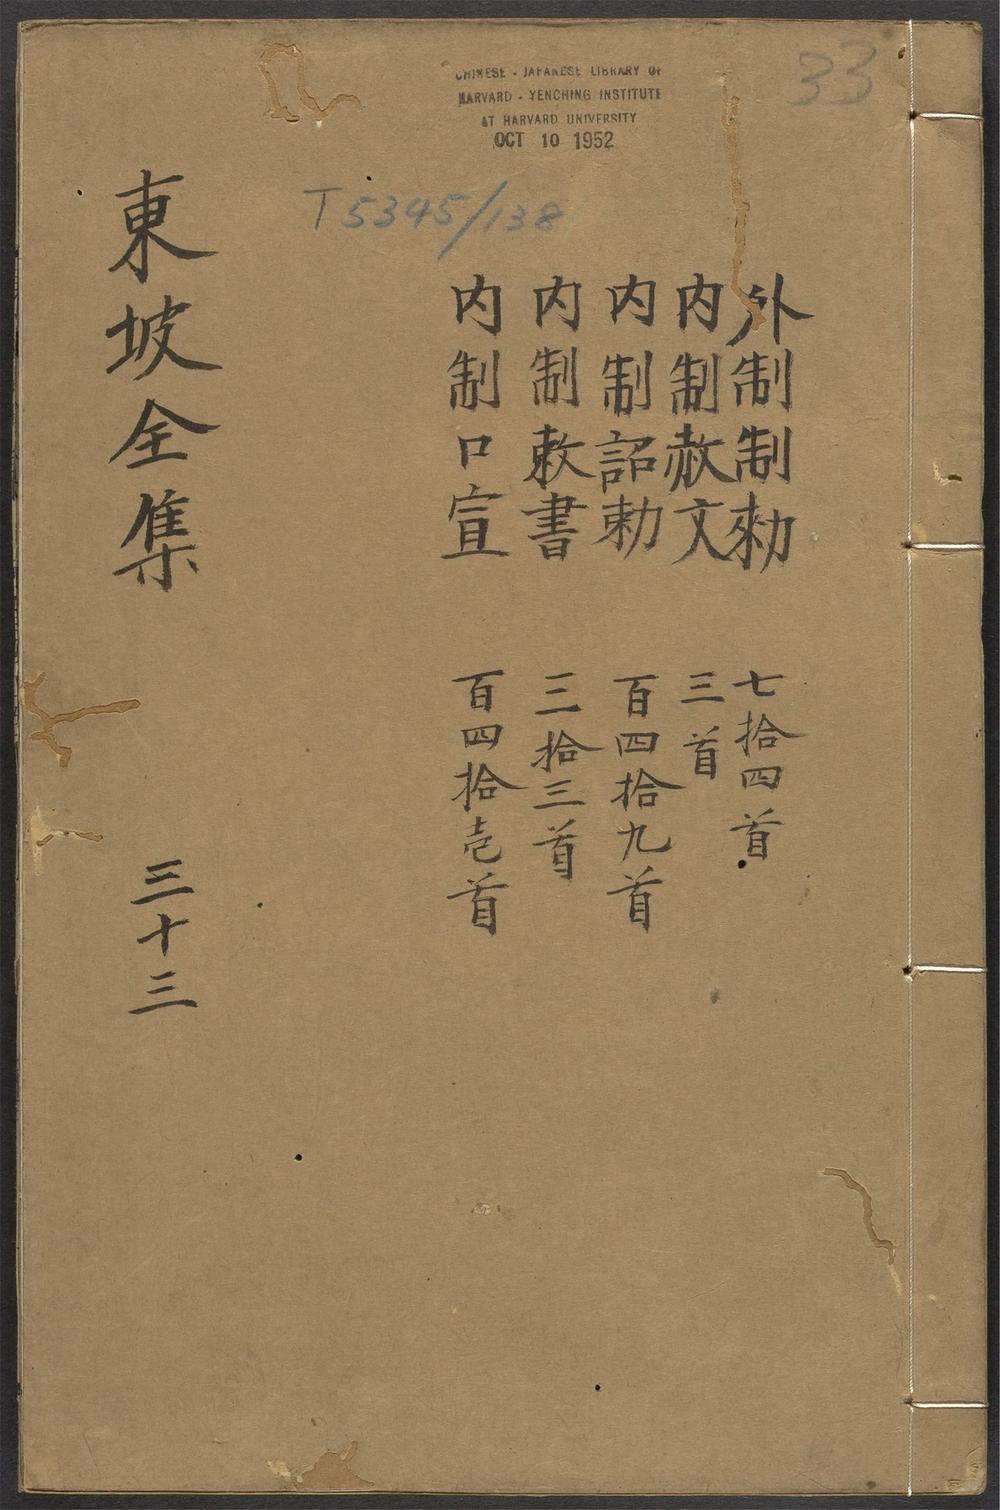 CHINESE - JAPANESE LIBRARY OF
HARVARD - YENCHING INSTITUTE
AT HARVARD UNIVERSITY
OCT 10 1952
33
T5345/138
外制制勑 七拾四首
内制赦文 三首
内制詔勅 百四拾九首
内制敕書 三拾三首
内制口宣 百四拾壱首
東坡全集 三十三